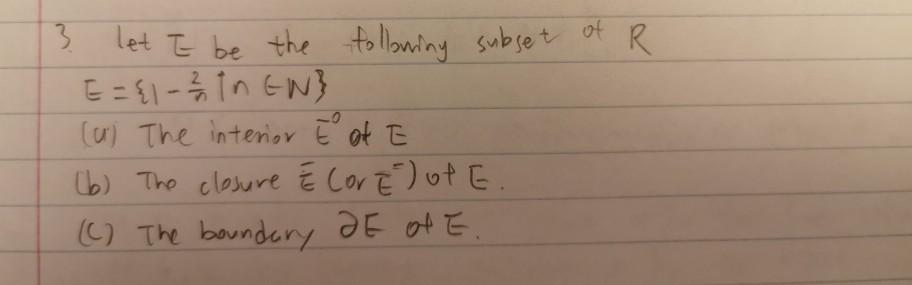 3. let E be the following subset of R
E = {1 - 2/n | n ∈ N}
(a) The interior E° of E
(b) The closure Ē (or E⁻) of E.
(c) The boundary ∂E of E.